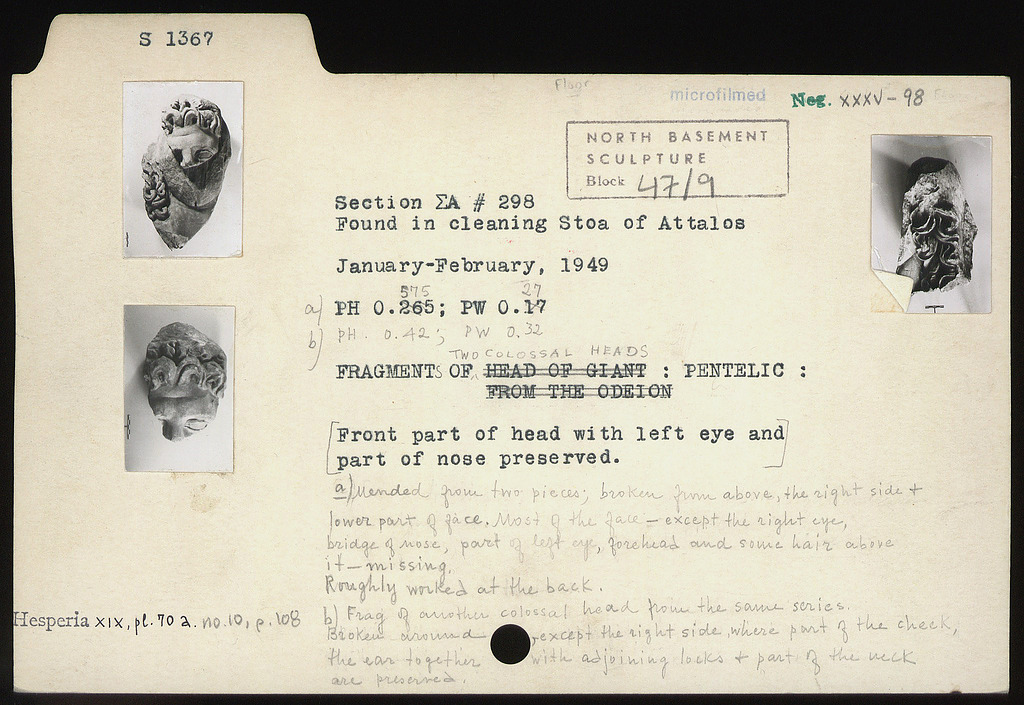 S 1367
Floor
microfilmed Neg. XXXV-98
NORTH BASEMENT
SCULPTURE
Block 47/9
Section ΣΑ # 298
Found in cleaning Stoa of Attalos
January-February, 1949
575 27
a) PH 0.265; PW 0.17
b) PH. 0.42; PW 0.32
TWO COLOSSAL HEADS
FRAGMENTS OF HEAD OF GIANT : PENTELIC :
FROM THE ODEION
[Front part of head with left eye and
part of nose preserved.]
a) Mended from two pieces; broken from above, the right side +
lower part of face. Most of the face – except the right eye,
bridge of nose, part of left eye, forehead and some hair above
it – missing.
Roughly worked at the back.
Hesperia XIX, pl. 70 a. no. 10, p. 108
b) Frag of another colossal head from the same series.
Broken around, except the right side, where part of the cheek,
the ear together with adjoining locks + part of the neck
are preserved.